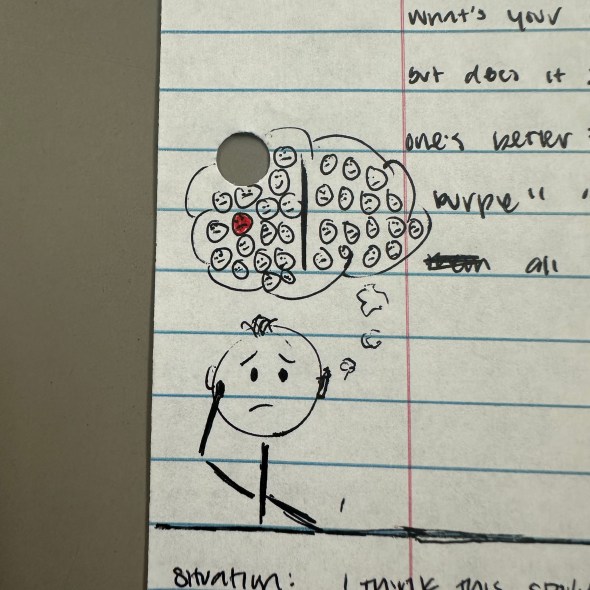 what's your
but does it
one's better
purple" "
all
situation: I think this